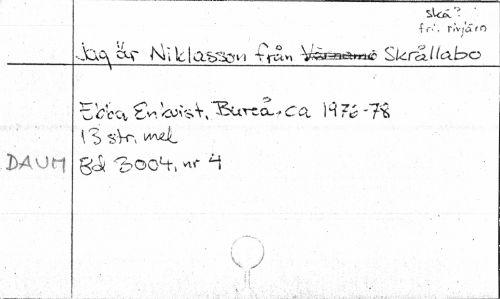 skå?
fr. rivjärn
Jag är Niklasson från Värnamo Skrållabo
Ebba Enkvist, Bureå, ca 1976-78
13 str, mel
DAUM Bd 3004, nr 4